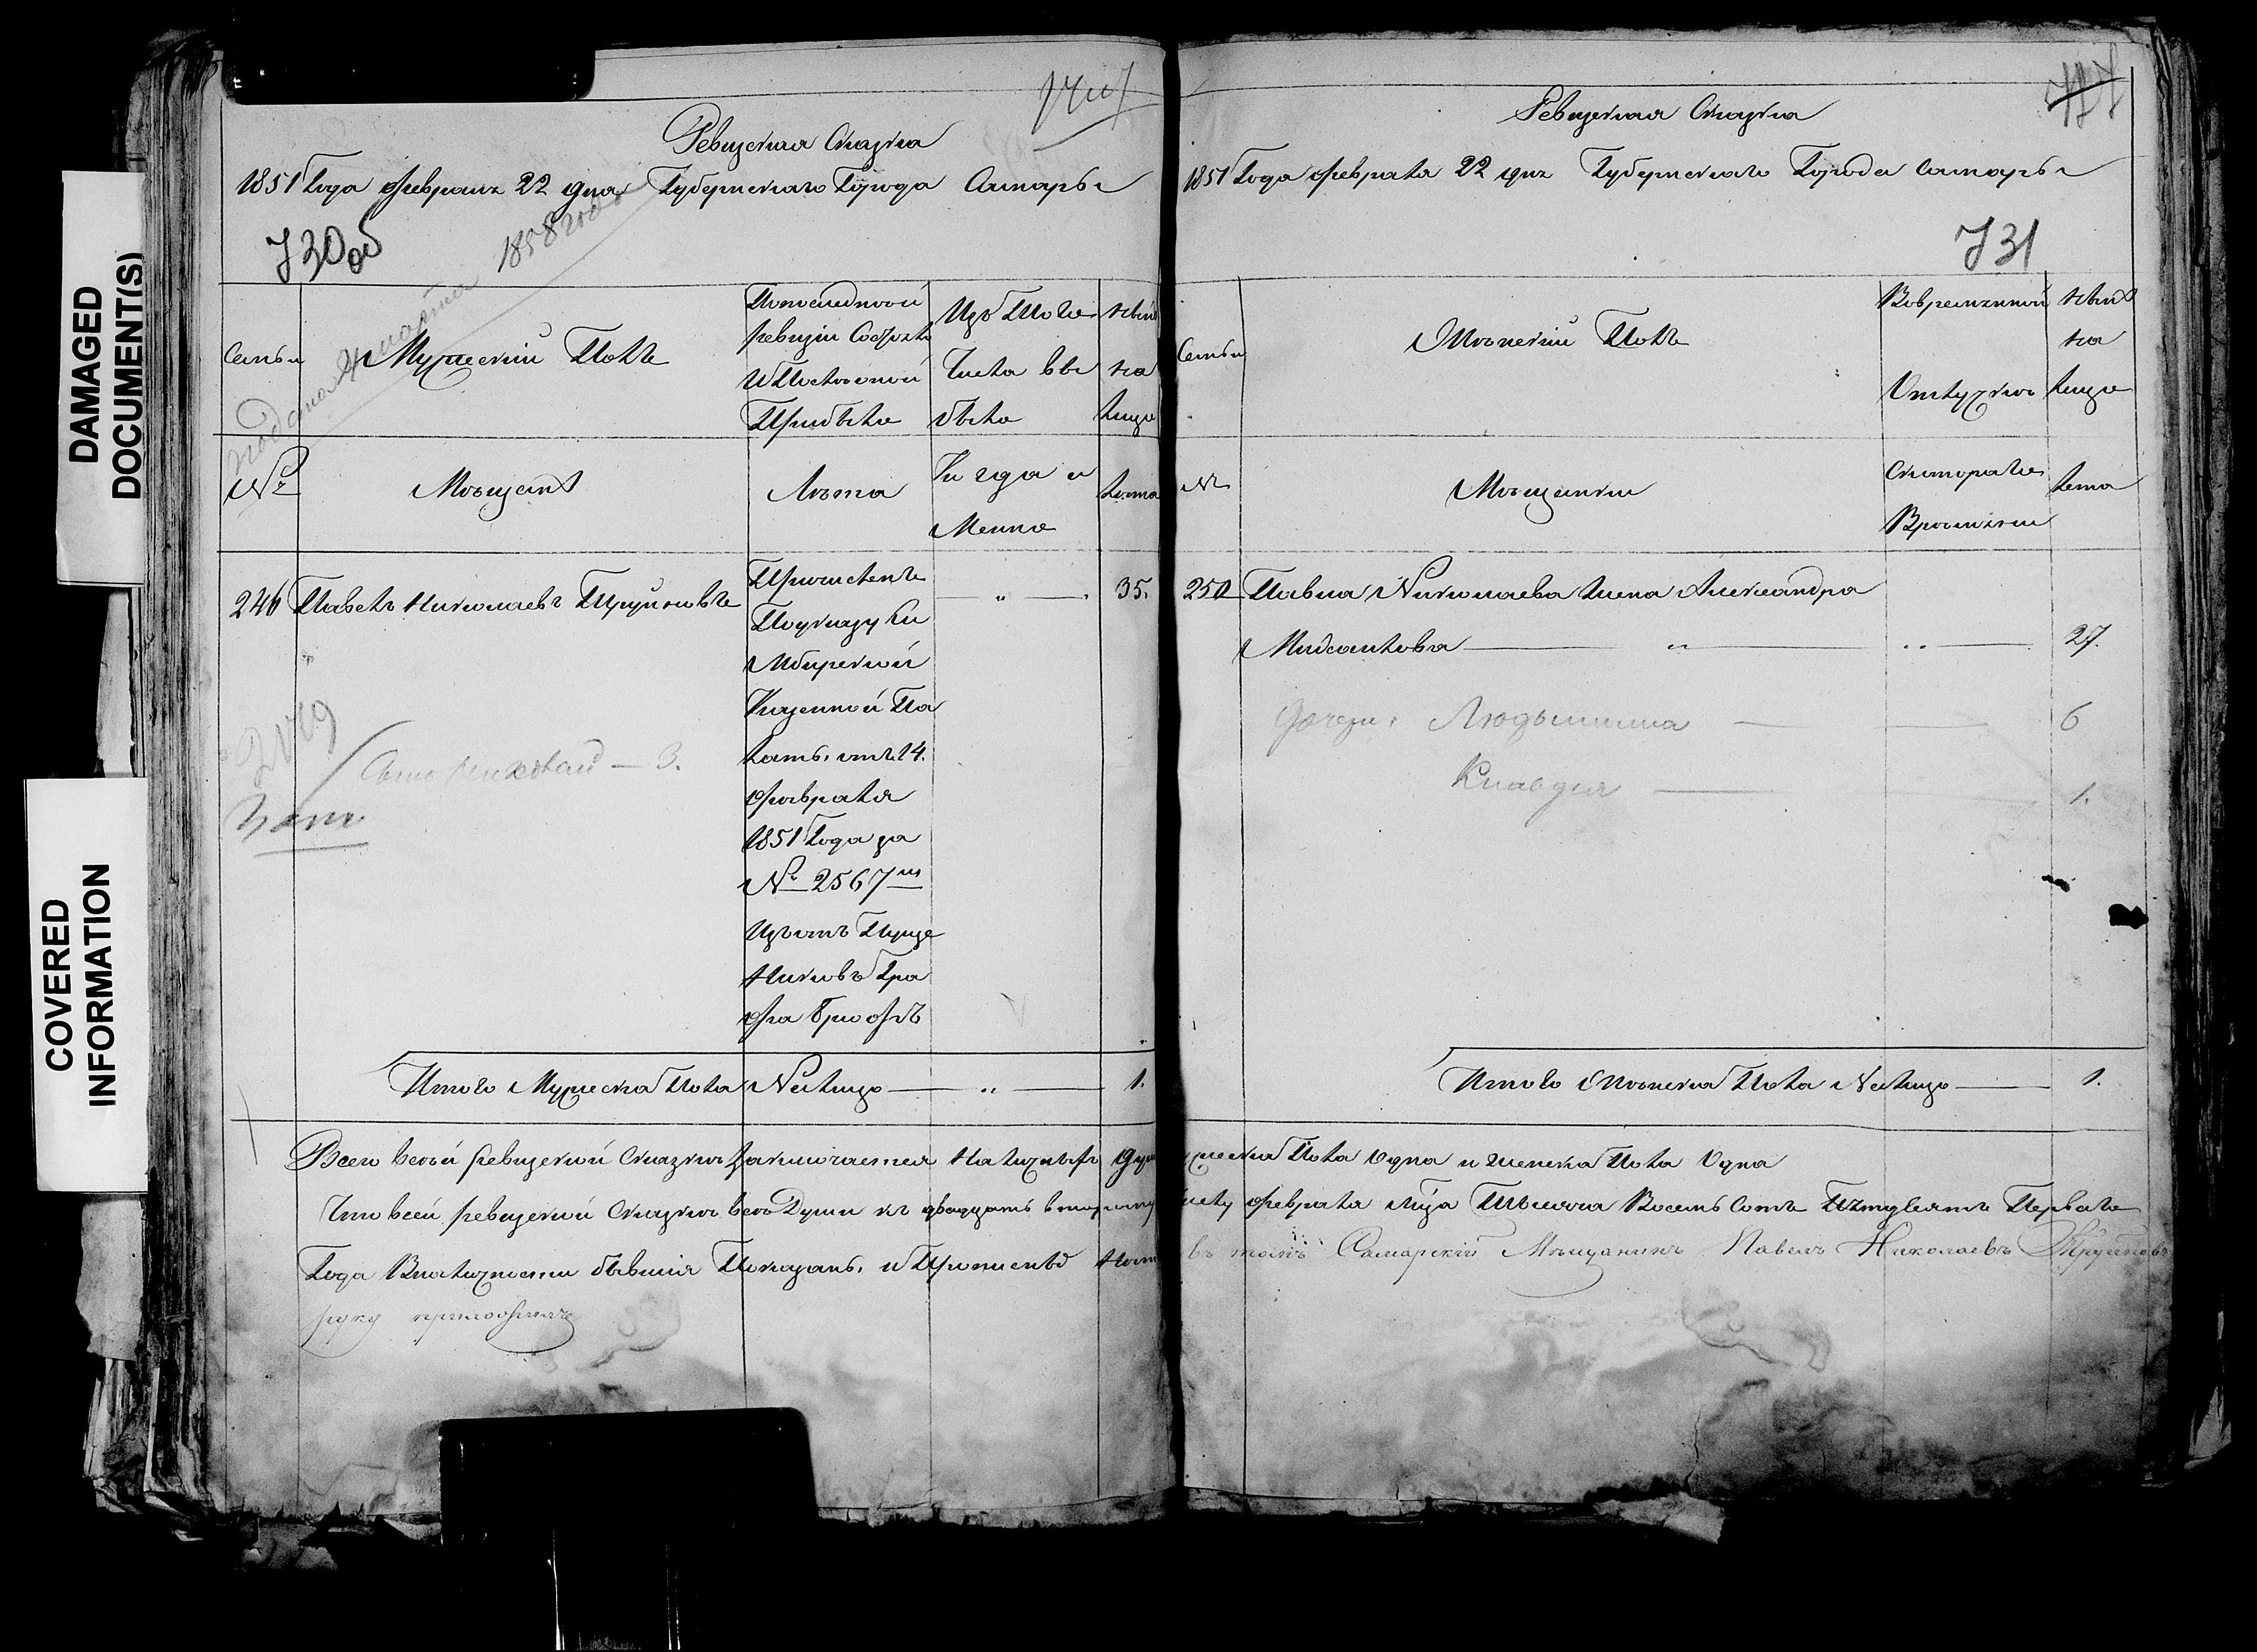 DAMAGED
DOCUMENT(S)
COVERED
INFORMATION
Ревизская Сказка
1851 Года февраля 22 дня Губернскаго Города Самары
730 об
1858 года
Семьи
Мужеский Полъ
По последней
ревизии Состоял
и После оной
Прибыло
Изъ Того
Числа вы
было
Ныне
на
лицо
№
Мещане
Лета
Когда и
Менно
Лета
246 Павелъ Николаевъ
Причисленъ 35.
По указу Си
мбирской
Казенной Па
латы отъ 14.
февраля
1851 Года за
№ 2567
Изъ
никовъ Гра
фа
3.
Итого Мужеска Пола На лицо 1.
Ревизская Сказка
1851 Года февраля 22 дня Губернскаго Города Самары
731
Семьи
Женский Полъ
Во временной
Отлучке
Ныне
на
лицо
№
Мещанки
С которого
Времени
Лета
250 Павла Николаева жена Александра
27.
дочери: Людьмилла 6
Клавдия 1.
Итого Женска Пола На лицо 1.
Всего въ сей ревизской Сказке Заключается На лицо мужеска Пола Одна и женска Пола Одна
Что в сей ревизской Сказке все Души къ двадцать второму числу февраля м-ца Тысяча Восемь Сотъ Пятдесятъ Перваго
Года В наличности бывшия Показаны, и Прописныхъ Нет въ томъ Самарский Мещанинъ Павелъ Николаевъ
руку приложилъ